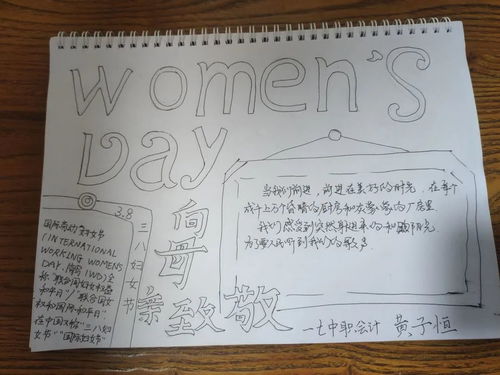 Women's
Day
3.8
三八妇女节
国际劳动妇女节
(INTERNATIONAL
WORKING WOMENS
DAY.简写IWD)全
称"联合国妇女权益
和平日"/"联合国女
权和国际和平日"
在中国又称"三八妇
女节""国际妇女节"
向母亲致敬
当我们前进,前进在美好的时光,在每个
成千上万个昏暗的厨房和灰蒙蒙的厂房里
我们感受到突然射进来的和煦阳光
为了要人民听到我们的歌声
一七中职会计 黄子恒